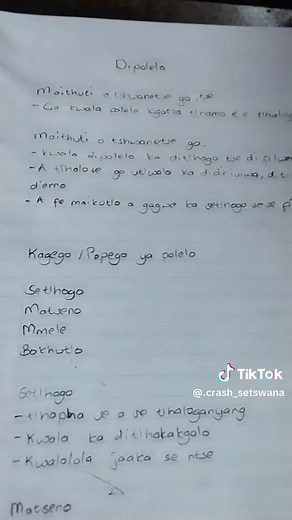 Dipolelo
Moithuti o tshwanetse go tse
- Go kwala polelo kgotla tiramo e e tlhalog
Moithuti o tshwanetse go.
- kwala dipolelo ka ditlhogo tse di filwe
- A tlhalose go utlwala ka didiriswa, dit
diemo
- A fe maikutlo a gagwe ka setlhogo se se fi
Kagego / Popego ya polelo
Setlhogo
Matseno
Mmele
Bokhutlo
TikTok
@.crash_setswana
Setlhogo
- tlhopha se o se tlhaloganyang
- Kwala ka ditlhakakgolo
- Kwalolola jaaka se ntse
Matseno